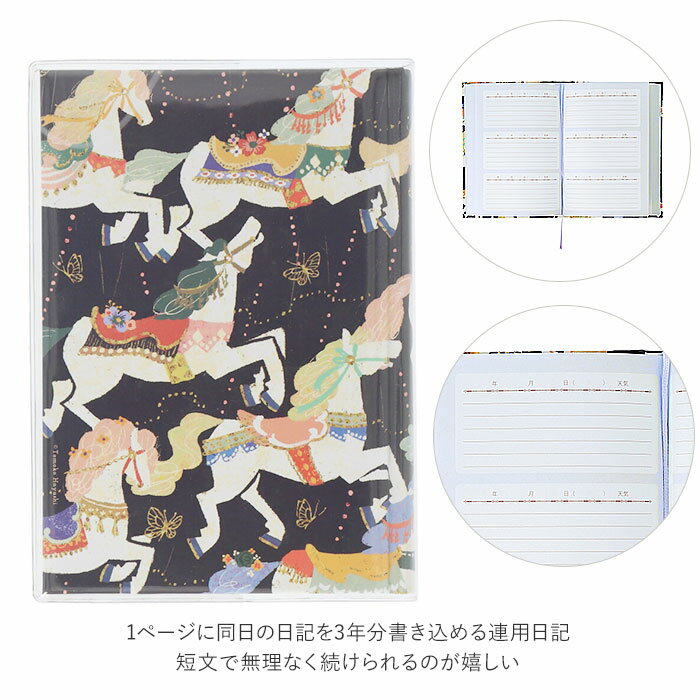 ©Tomoko Hayashi
年 月 日( ) 天気
年 月 日( ) 天気
1ページに同日の日記を3年分書き込める連用日記
短文で無理なく続けられるのが嬉しい